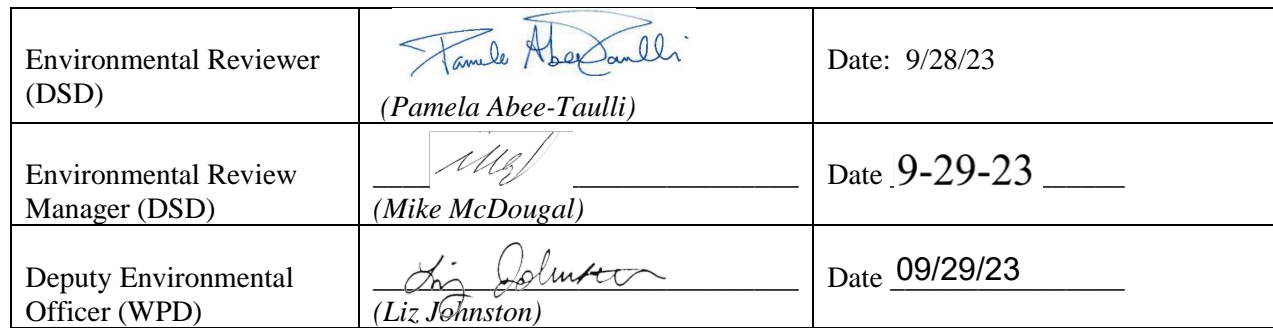 Environmental Reviewer
(DSD)
Pamela Abee-Taulli
(Pamela Abee-Taulli)
Date: 9/28/23
Environmental Review
Manager (DSD)
(Mike McDougal)
Date 9-29-23
Deputy Environmental
Officer (WPD)
Liz Johnston
(Liz Johnston)
Date 09/29/23